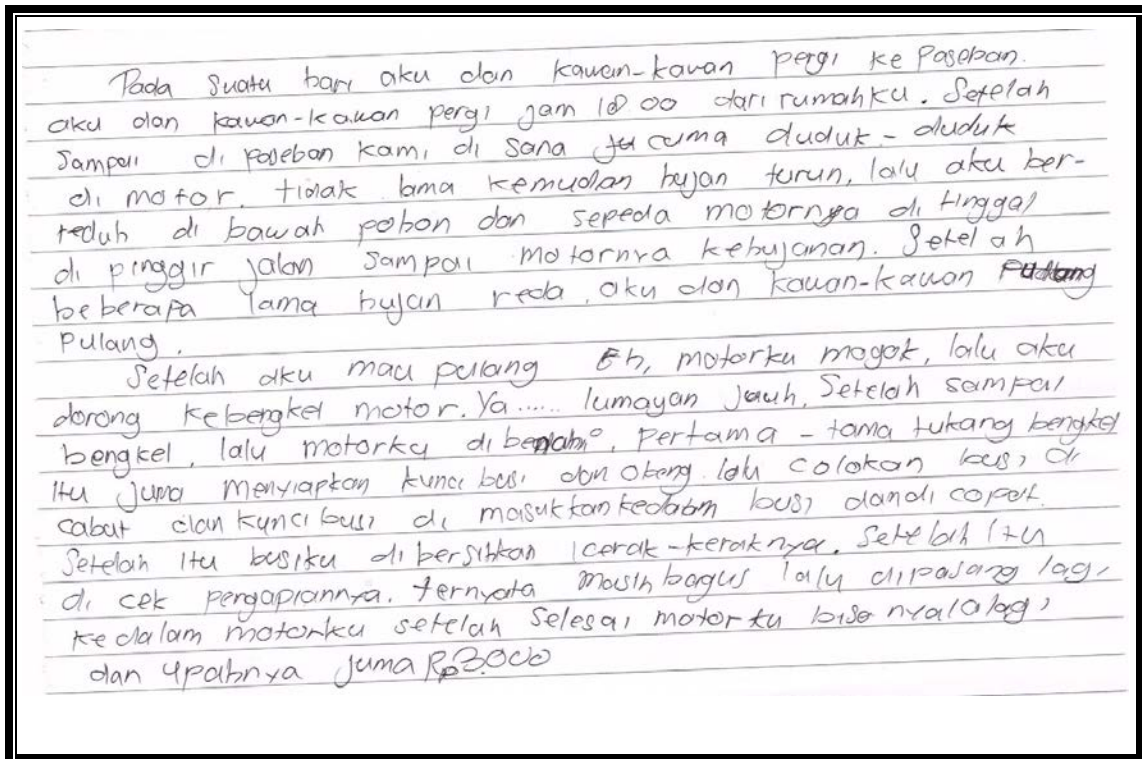 Pada suatu hari aku dan kawan-kawan pergi ke Paseban.
aku dan kawan-kawan pergi jam 10 00 dari rumahku. Setelah
Sampai di paseban kami di sana cuma duduk-duduk
di motor. tidak lama kemudian hujan turun, lalu aku ber-
teduh di bawah pohon dan sepeda motornya di tinggal
di pinggir jalan sampai motornya kehujanan. Setelah
beberapa lama hujan reda, aku dan kawan-kawan
Pulang.
Setelah aku mau pulang Eh, motorku mogok, lalu aku
dorong kebengkel motor. Ya..... lumayan Jauh, Setelah sampai
bengkel, lalu motorku di, pertama-tama tukang bengkel
itu juma menyiapkan kunci busi dan obeng. lalu colokan busi di
cabut dan kunci busi di masukkan kedalam busi dan di copot.
Setelah itu busiku di bersihkan kerak-keraknya. Setelah Itu
di cek pengapiannya. ternyata masih bagus lalu dipasang lagi
ke dalam motorku setelah selesai motorku bisa nyala lagi
dan upahnya juma Rp3.000